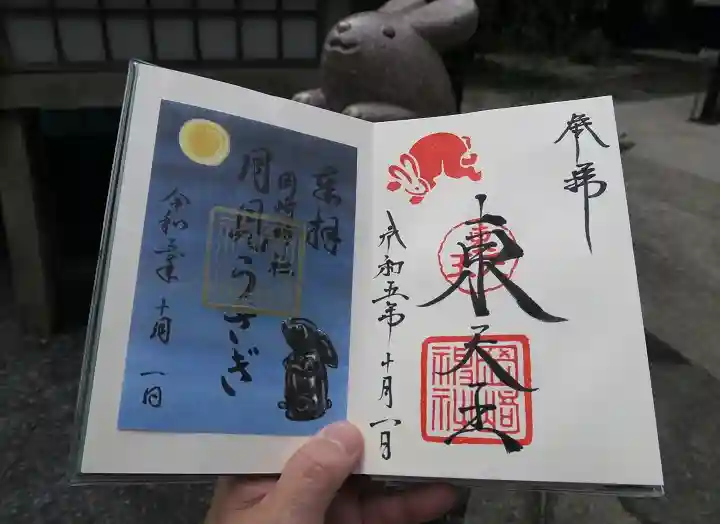 奉拝
東天王
岡﨑神社
令和五年十月一日
奉拝
岡崎神社
うさぎ
令和五年十月一日